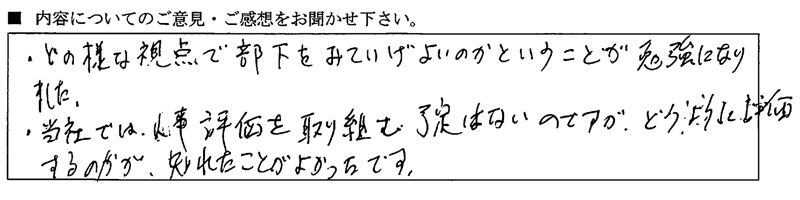 ■ 内容についてのご意見・ご感想をお聞かせ下さい。
・どの様な視点で部下をみていけばよいのかということが勉強になり
ました。
・当社では、人事評価を取り組む予定はないのですが、どう部下に評価
するのかが、知れたことがよかったです。